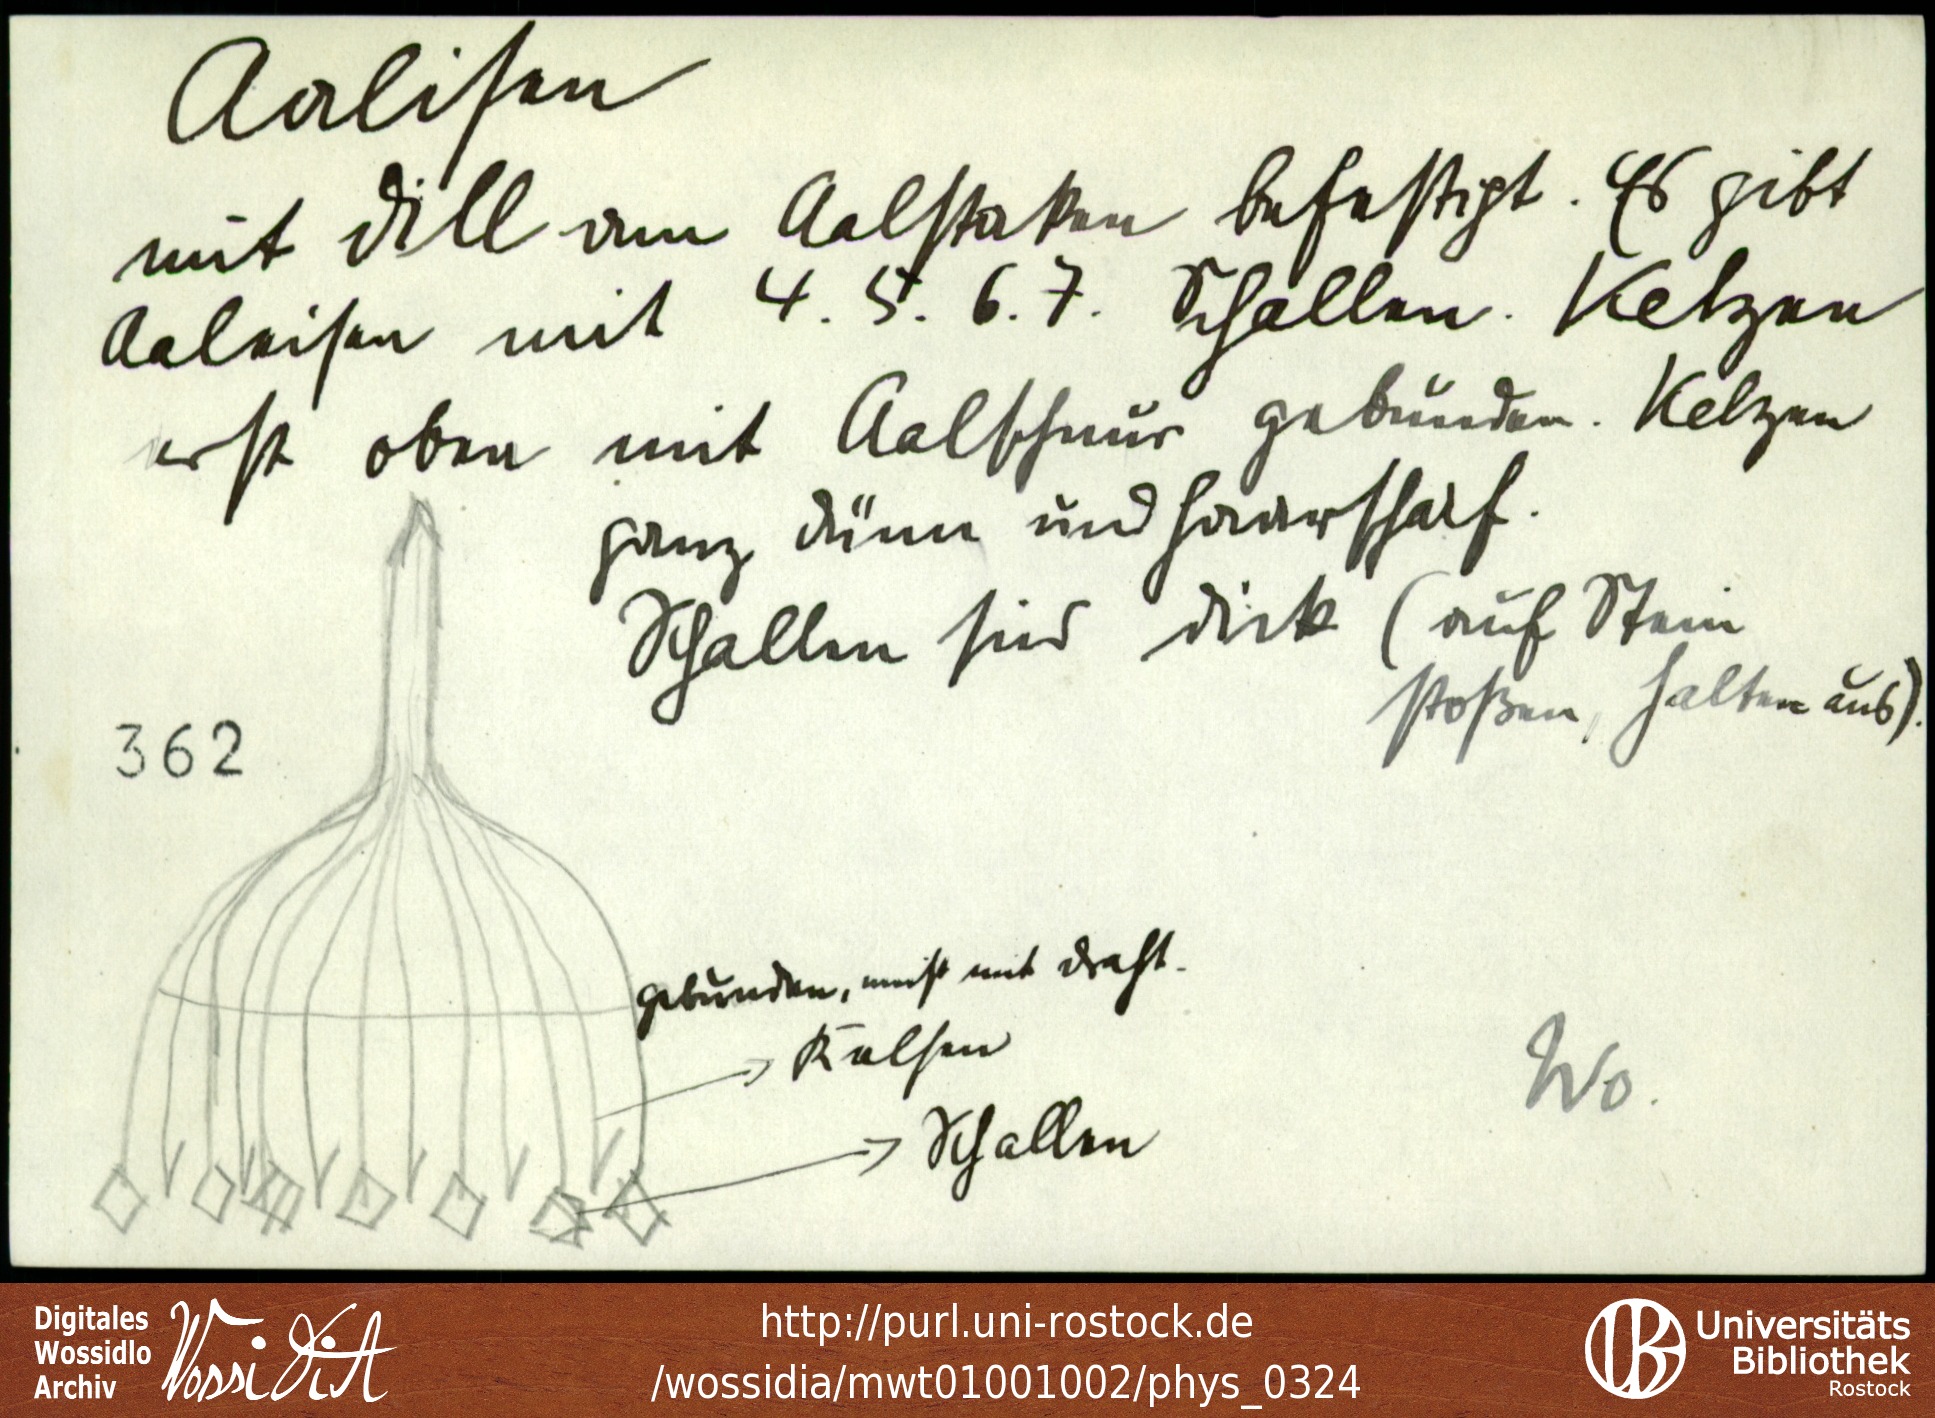 Aalisen
mit Dill am Aalstaken befestigt. Es gibt
Aaleisen mit 4. 5. 6. 7. Schallen. Kelzen
erst oben mit Aalschnur gebunden. Kelzen
ganz dünn und haarscharf.
Schallen sind dick (auf Stein
stoßen, halten aus).
362
gebunden, meist mit Draht.
Kelsen
Schallen
Wo.
Digitales
Wossidlo
Archiv
WossiDiA
http://purl.uni-rostock.de
/wossidia/mwt01001002/phys_0324
Universitäts
Bibliothek
Rostock